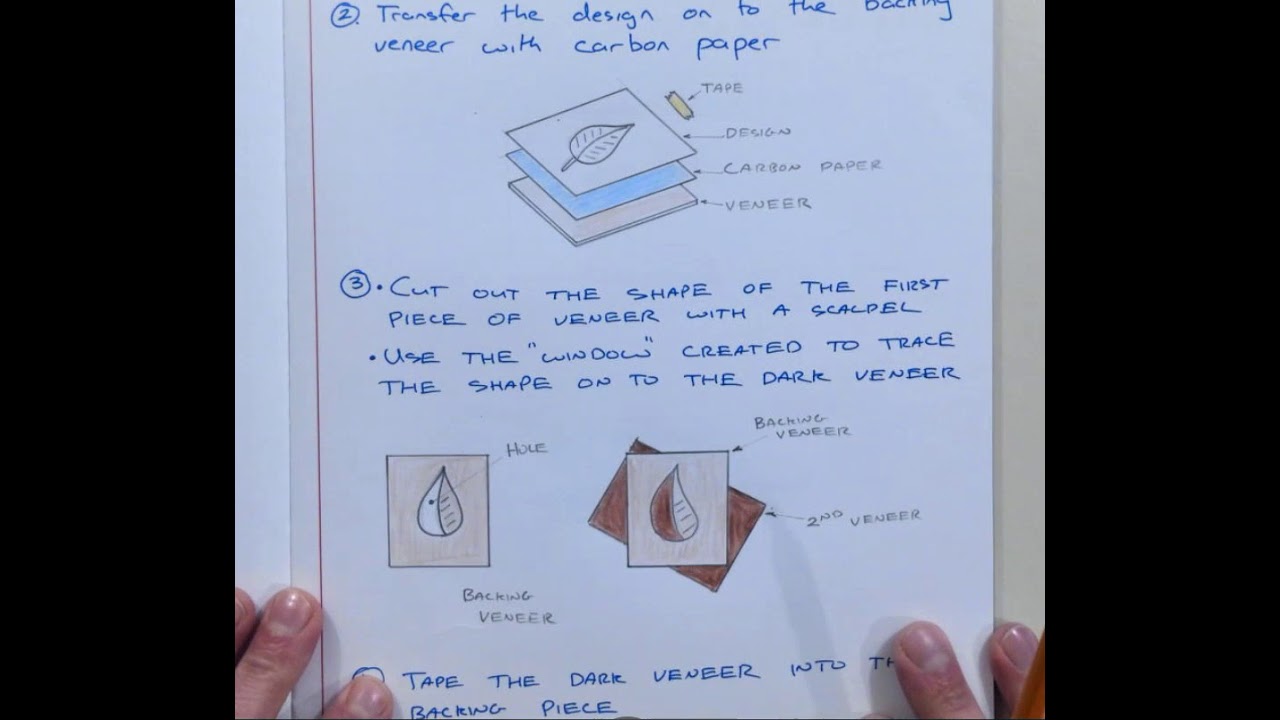 ② Transfer the design on to the backing
veneer with carbon paper
TAPE
DESIGN
CARBON PAPER
VENEER
③ • CUT OUT THE SHAPE OF THE FIRST
PIECE OF VENEER WITH A SCALPEL
• USE THE "WINDOW" CREATED TO TRACE
THE SHAPE ON TO THE DARK VENEER
HOLE
BACKING
VENEER
BACKING
VENEER
2ND VENEER
TAPE THE DARK VENEER INTO
BACKING PIECE